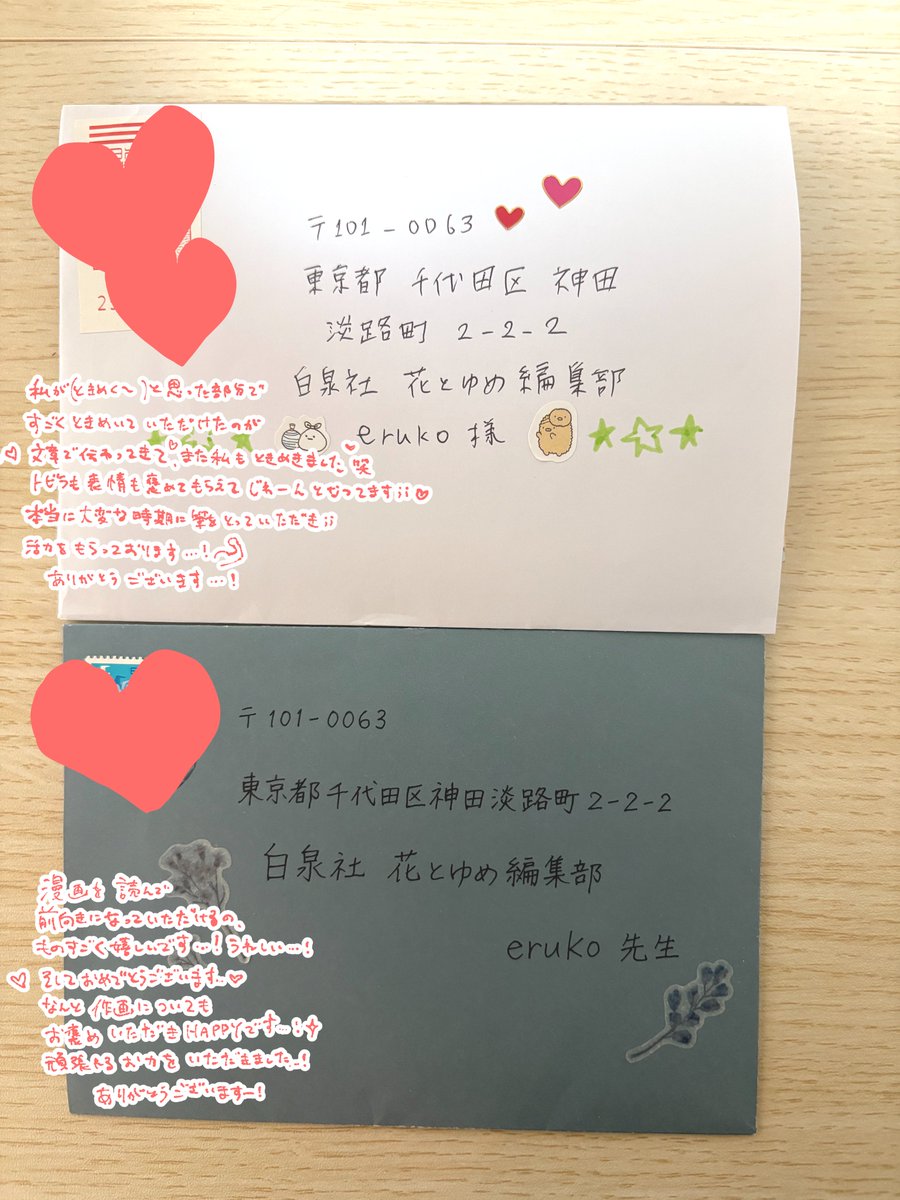 〒101-0063
東京都 千代田区 神田
淡路町 2-2-2
白泉社 花とゆめ編集部
eruko 様
私が(ときめく〜)と思った部分で
すごくときめいていただけたのが
文章で伝わってきて、また私もときめきました笑
トビラも表情も褒めてもらえてじわーんとなってます;;
本当に大変な時期に筆をとっていただき;;
活力をもらっております…!
ありがとうございます…!
〒101-0063
東京都千代田区神田淡路町2-2-2
白泉社 花とゆめ編集部
eruko 先生
漫画を読んで
前向きになっていただけるの、
ものすごく嬉しいです…!うれしい…!
そしておめでとうございます…
なんと作画についても
お褒めいただきHAPPYです…
頑張るお力をいただきました…!
ありがとうございますー!